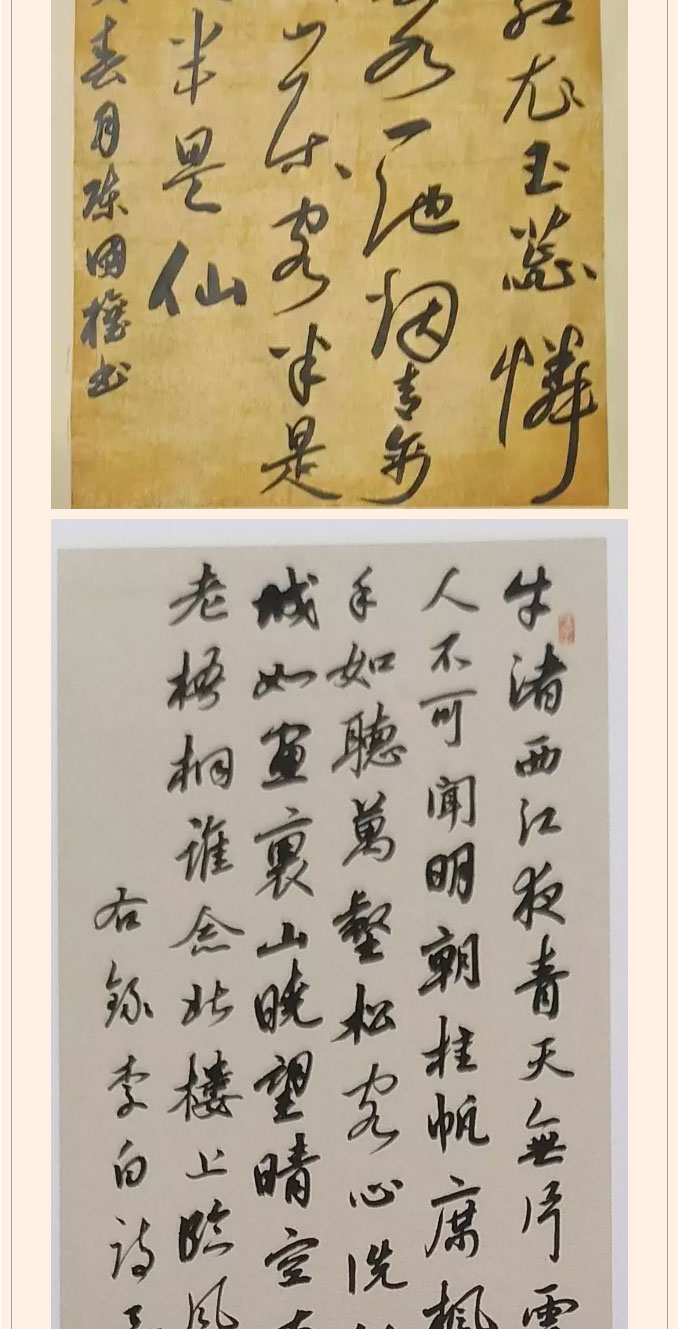 尤玉蕊憐
水一池烟青衫
山尽客半是
半是仙
春月陳國權书
牛渚西江夜青天無片雲
人不可聞明朝挂帆席楓
手如聽萬壑松客心洗
城如畫裏山曉望晴空
老梧桐誰念北樓上臨風
右錄李白詩